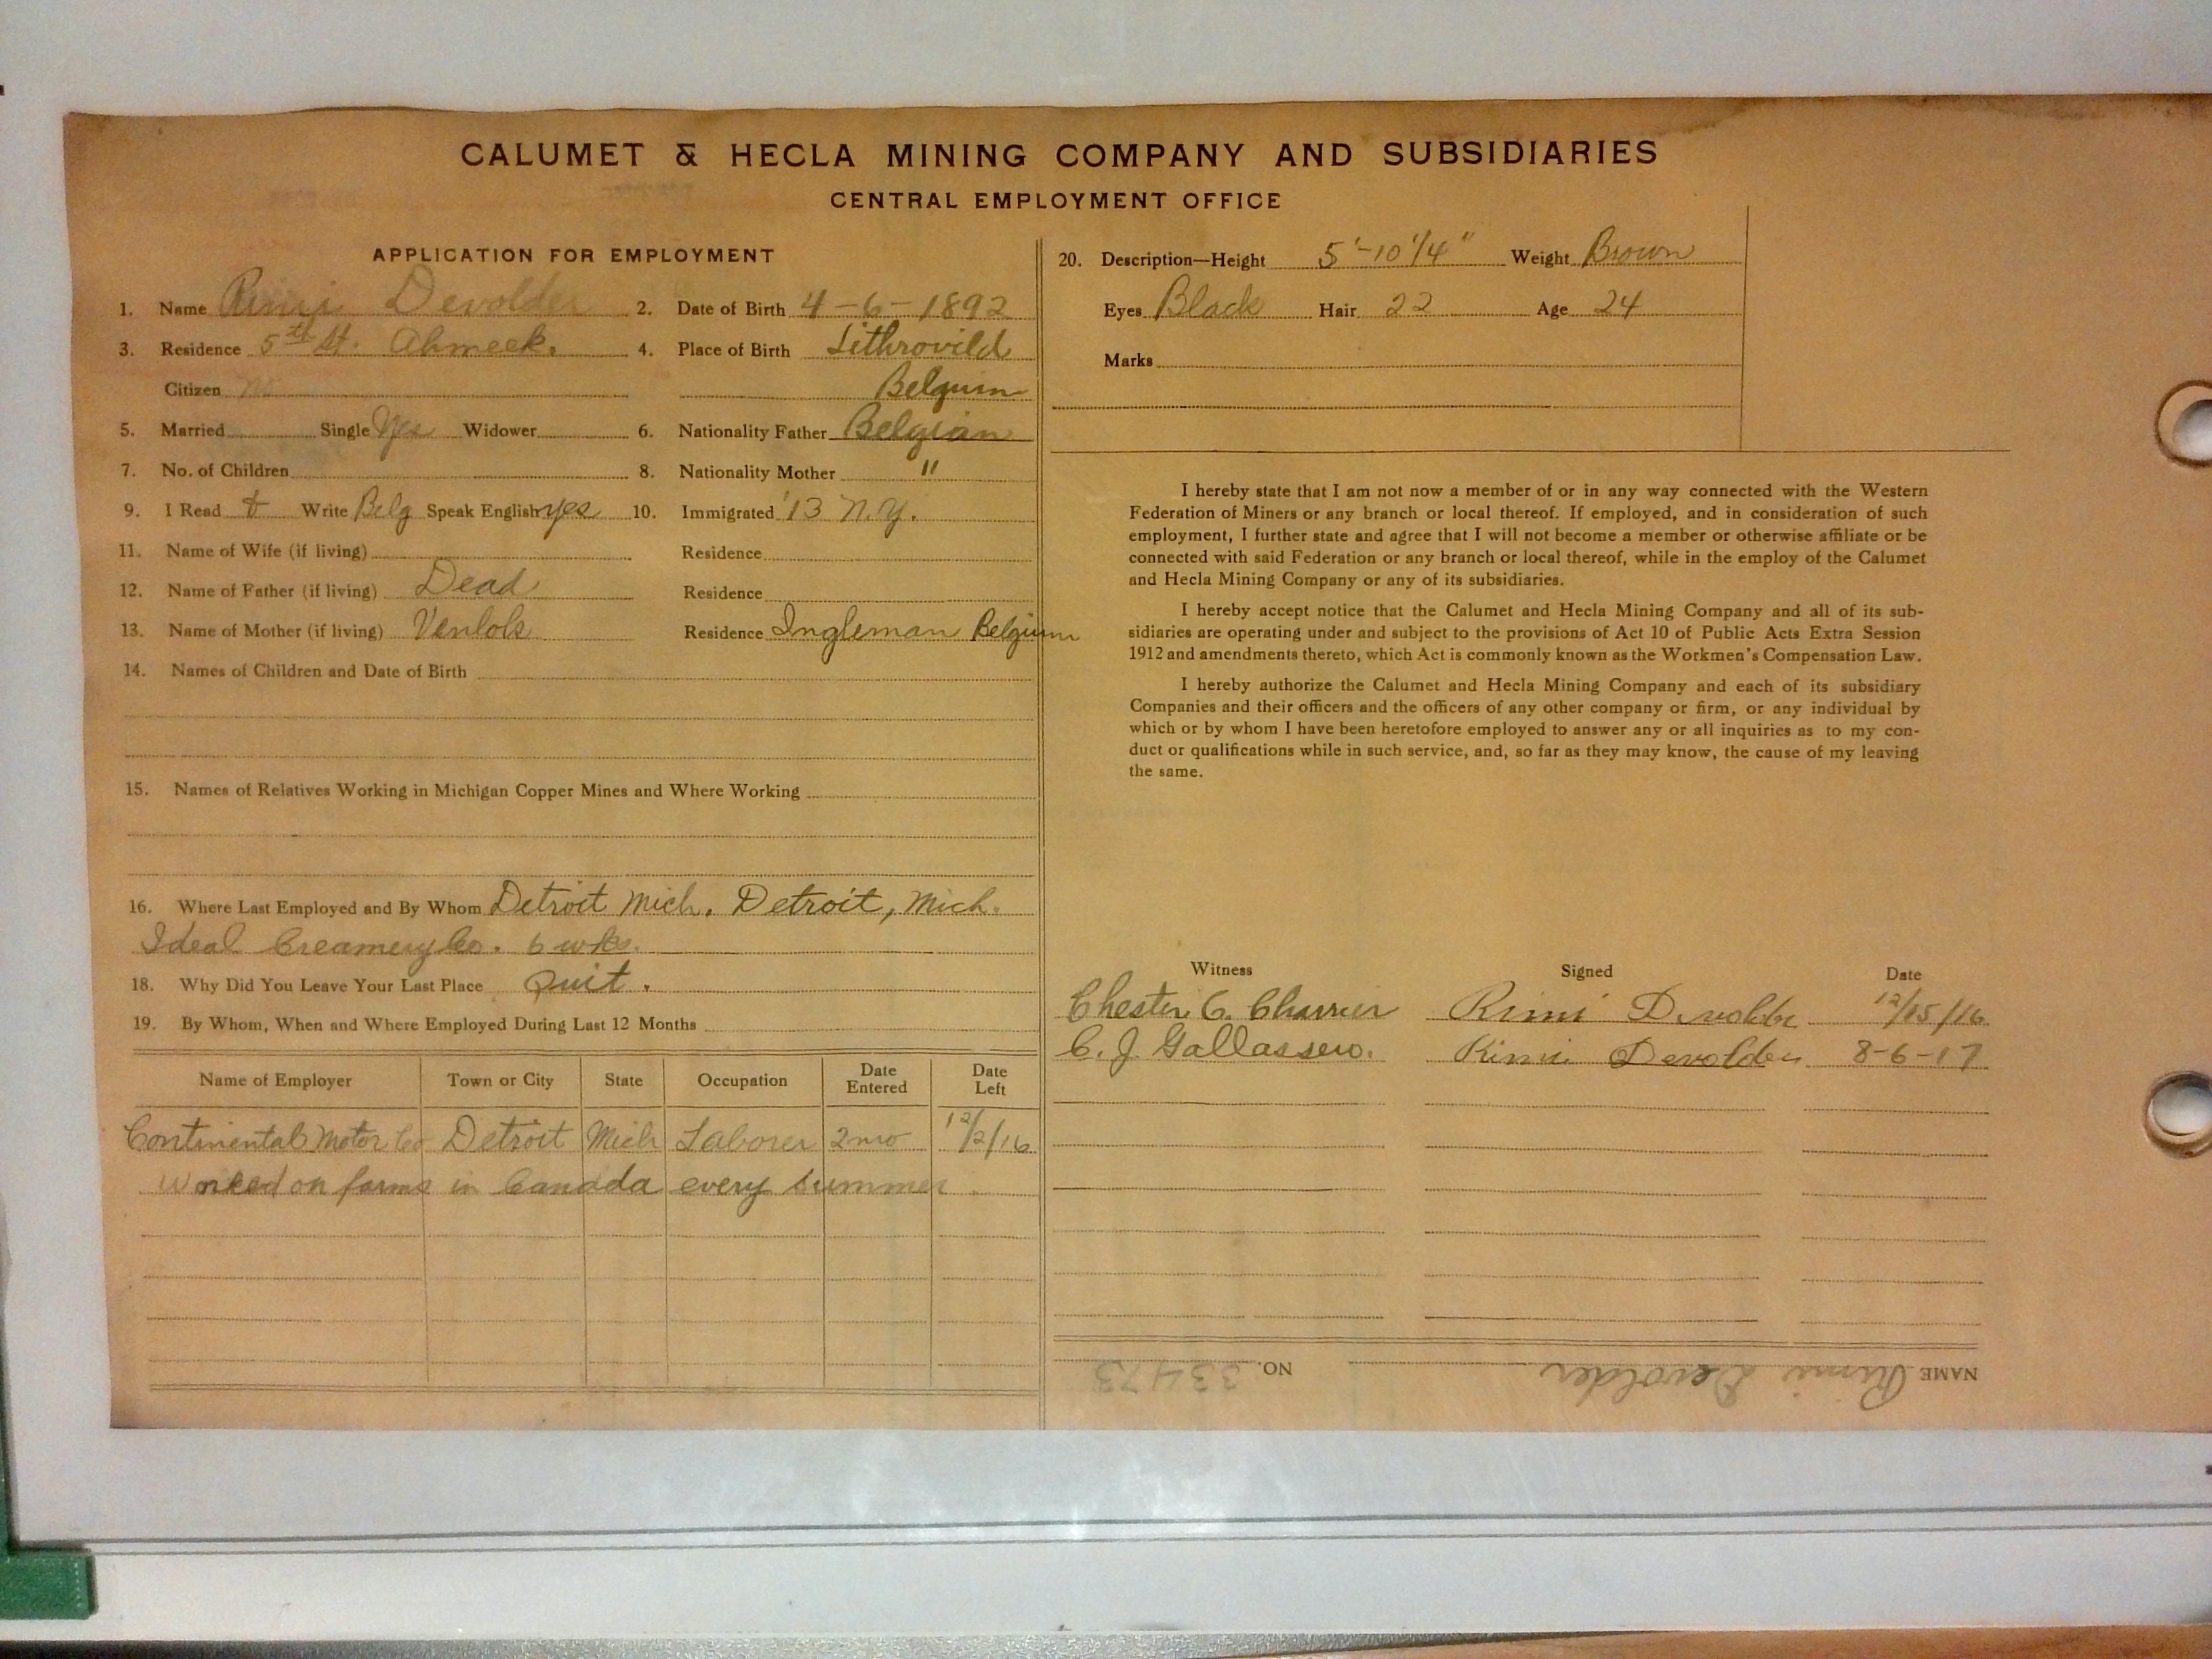 CALUMET & HECLA MINING COMPANY AND SUBSIDIARIES
CENTRAL EMPLOYMENT OFFICE
APPLICATION FOR EMPLOYMENT
1. Name Rimi Devolder 2. Date of Birth 4-6-1892
3. Residence 5th St. Ahmeek. 4. Place of Birth Lithrovild
Citizen Belguim
5. Married Single Yes Widower 6. Nationality Father Belgian
7. No. of Children 8. Nationality Mother "
9. I Read & Write Belg Speak English yes 10. Immigrated '13 N.Y.
11. Name of Wife (if living) Residence
12. Name of Father (if living) Dead Residence
13. Name of Mother (if living) Venlok Residence Ingleman Belgium
14. Names of Children and Date of Birth
15. Names of Relatives Working in Michigan Copper Mines and Where Working
16. Where Last Employed and By Whom Detroit Mich. Detroit, Mich.
Ideal Creamery Co. 6 wks.
18. Why Did You Leave Your Last Place Quit.
19. By Whom, When and Where Employed During Last 12 Months
Name of Employer Town or City State Occupation Date Entered Date Left
Continental Motor Co Detroit Mich Laborer 2 mo 12/2/16
Worked on farms in Canada every summer
20. Description—Height 5'-10 1/4" Weight Brown
Eyes Black Hair 22 Age 24
Marks
I hereby state that I am not now a member of or in any way connected with the Western
Federation of Miners or any branch or local thereof. If employed, and in consideration of such
employment, I further state and agree that I will not become a member or otherwise affiliate or be
connected with said Federation or any branch or local thereof, while in the employ of the Calumet
and Hecla Mining Company or any of its subsidiaries.
I hereby accept notice that the Calumet and Hecla Mining Company and all of its sub-
sidiaries are operating under and subject to the provisions of Act 10 of Public Acts Extra Session
1912 and amendments thereto, which Act is commonly known as the Workmen's Compensation Law.
I hereby authorize the Calumet and Hecla Mining Company and each of its subsidiary
Companies and their officers and the officers of any other company or firm, or any individual by
which or by whom I have been heretofore employed to answer any or all inquiries as to my con-
duct or qualifications while in such service, and, so far as they may know, the cause of my leaving
the same.
Witness Signed Date
Chester C. Charrier Rimi Devolder 12/15/16
C. J. Gallassero. Rimi Devolder 8-6-17
NAME Rimi Devolder NO. 33473